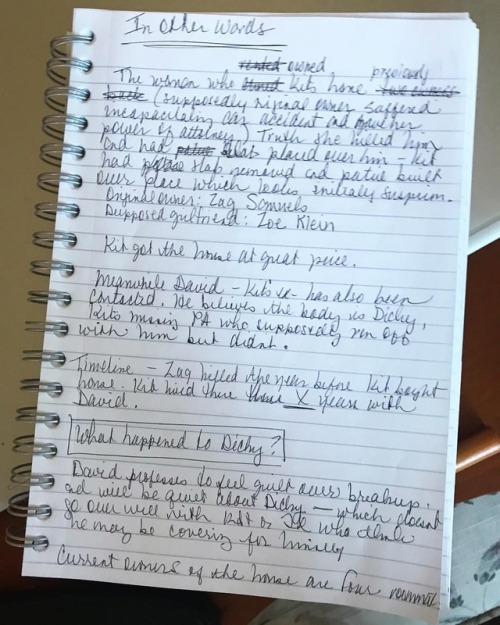 In Other Words
rented owned previously
The woman who Kits home
(supposedly original owner suffered
incapacitating car accident and gave her
power of attorney) Truth she killed him
and had patio slab placed over him - Kit
had patio slab removed and patio built
over place which looks, initially suspicious.
Original owner: Zag Sammels
Supposed girlfriend: Zoe Klein
Kit got the house at great price.
Meanwhile David - Kit's ex - has also been
contacted. He believes the body is Dichy,
Kits missing PA who supposedly run off
with him but didnt.
Timeline - Zag killed the year before Kit bought
house. Kit lived there X years with
David.
What happened to Dichy?
David professes to feel guilt over breakup.
and will be quiet about Dichy - which doesnt
go over well with Kit or who think
he may be covering for himself
Current owners of the house are four